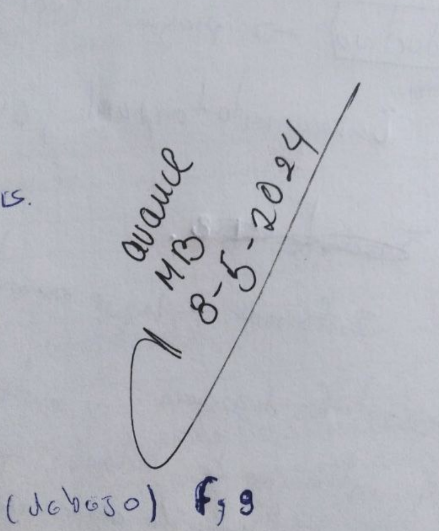 s.
avance
MB
8-5-2024
(debajo) F, g